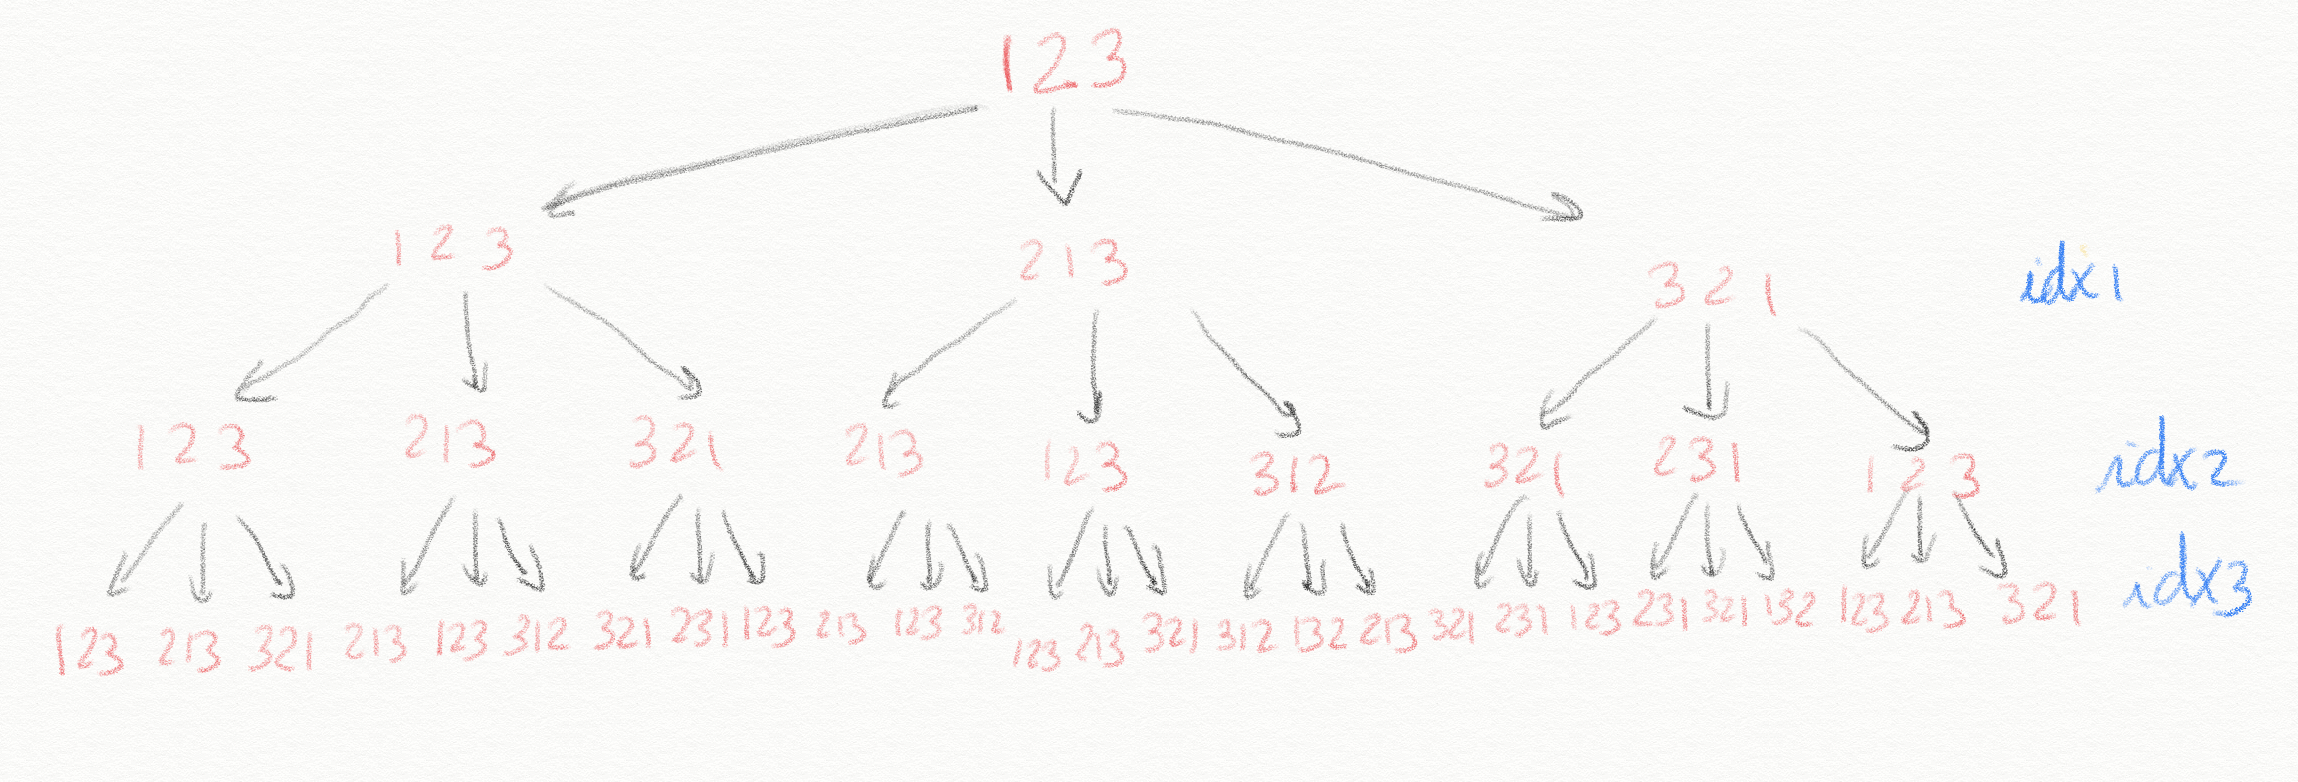 1 2 3
1 2 3 2 1 3 3 2 1 idx 1
1 2 3 213 321 213 123 312 321 231 1 2 3 idx2
123 213 321 213 123 312 321 231 123 213 123 312 123 213 321 312 132 213 321 231 123 231 321 132 123 213 321 idx3